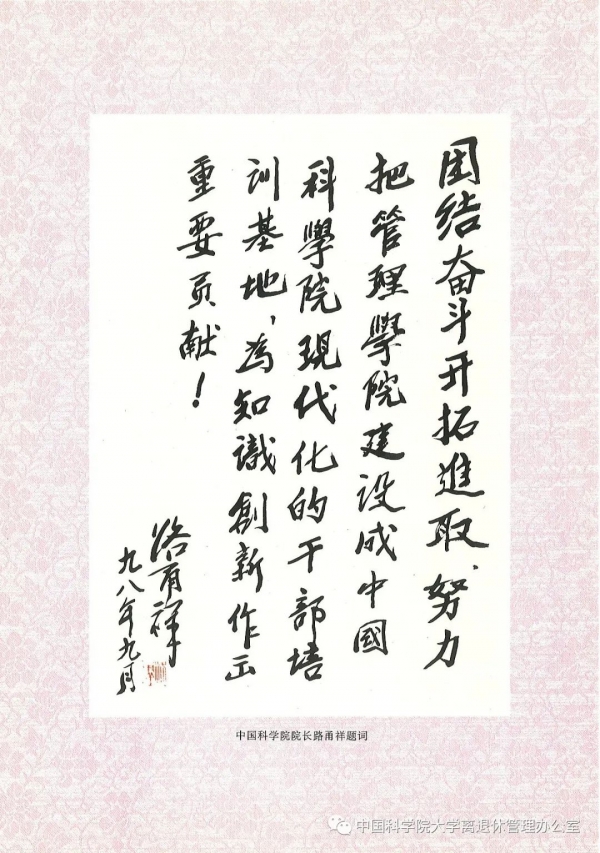 团结奋斗开拓進取、努力
把管理學院建设成中國
科學院現代化的干部培
训基地，為知識創新作出
重要贡献！
路甬祥
九八年九月
中国科学院院长路甬祥题词
中国科学院大学离退休管理办公室